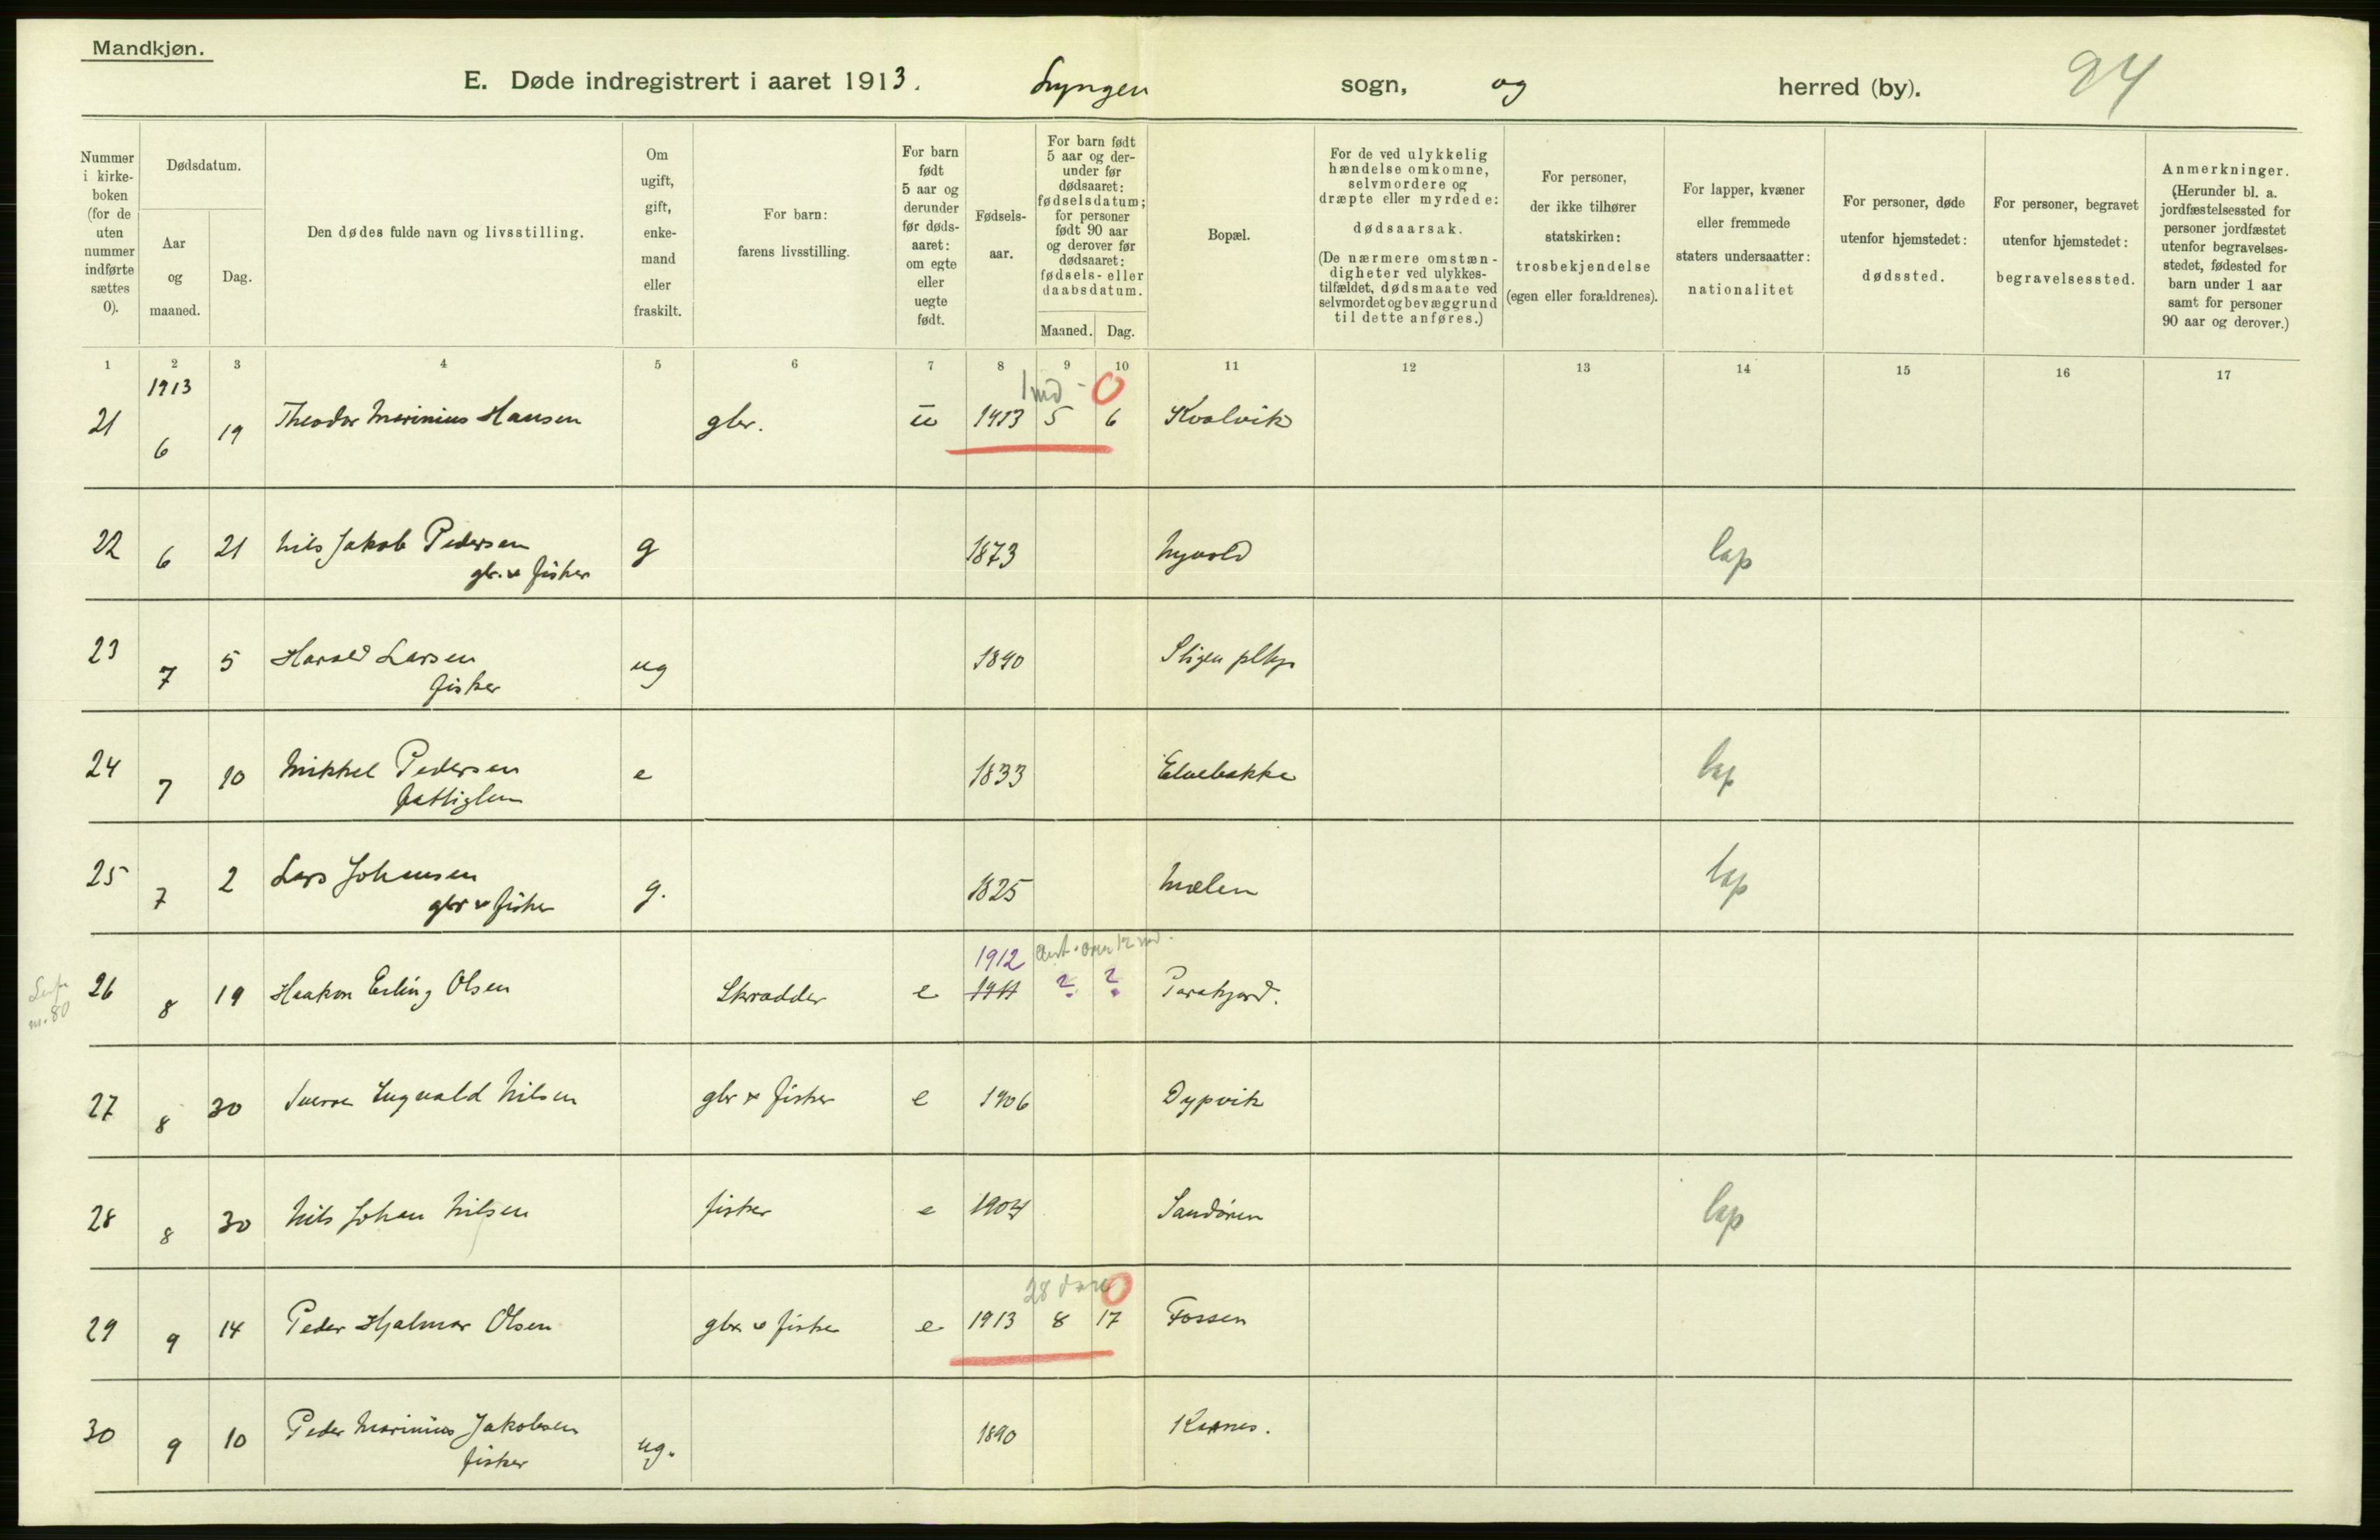 Mandkjøn.
E. Døde indregistrert i aaret 1913. Lyngen sogn, og herred (by). 94
Nummer i kirke- boken (for de uten nummer indførte sættes 0).
Dødsdatum.
Aar og maaned.
Dag.
Den dødes fulde navn og livsstilling.
Om ugift, gift, enke- mand eller fraskilt.
For barn: farens livsstilling.
For barn født 5 aar og derunder før døds- aaret: om egte eller uegte født.
Fødsels- aar.
For barn født 5 aar og der- under før dødsaaret: fødselsdatum; for personer født 90 aar og derover før dødsaaret: fødsels- eller daabsdatum.
Maaned. Dag.
Bopæl.
For de ved ulykkelig hændelse omkomne, selvmordere og dræpte eller myrdede: dødsaarsak. (De nærmere omstæn- digheter ved ulykkes- tilfældet, dødsmaate ved selvmordet og bevæggrund til dette anføres.)
For personer, der ikke tilhører statskirken: trosbekjendelse (egen eller forældrenes).
For lapper, kvæner eller fremmede staters undersaatter: nationalitet
For personer, døde utenfor hjemstedet: dødssted.
For personer, begravet utenfor hjemstedet: begravelsessted.
Anmerkninger. (Herunder bl. a. jordfæstelsessted for personer jordfæstet utenfor begravelses- stedet, fødested for barn under 1 aar samt for personer 90 aar og derover.)
1 2 3 4 5 6 7 8 9 10 11 12 13 14 15 16 17
1913 1 md - 0
21 6 19 Theodor Marinius Hansen gbr. u 1913 5 6 Kvalvik
22 6 21 Nils Jakob Pedersen g 1873 Nyvold lap
gbr. & fisker
23 7 5 Harald Larsen ug 1890 Stigen
fisker
24 7 10 Mikkel Pedersen e 1833 Elvebakke lap
fattiglem
25 7 2 Lars Johansen g. 1825 Mælen lap
gbr & fisker
1912 ant. over 12 md.
26 8 19 Haakon Erling Olsen Skrædder e 1911 ? ?
nr. 80
27 8 30 Sverre Ingvald Nilsen gbr & fisker e 1906 Dypvik
28 8 30 Nils Johan Nilsen fisker e 1904 Sandøren lap
28 dage 0
29 9 14 Peder Hjalmar Olsen gbr & fisker e 1913 8 17 Fossen
30 9 10 Peder Marinius Jakobsen ug. 1890 Karnes.
fisker